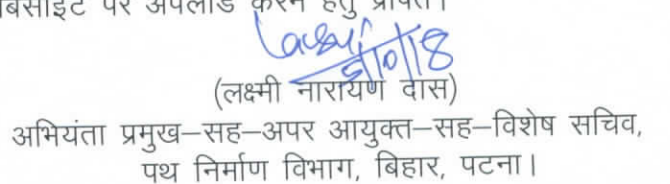 बसाइट पर अपलोड करने हेतु प्रेषित।
(लक्ष्मी नारायण दास)
अभियंता प्रमुख–सह–अपर आयुक्त–सह–विशेष सचिव,
पथ निर्माण विभाग, बिहार, पटना।